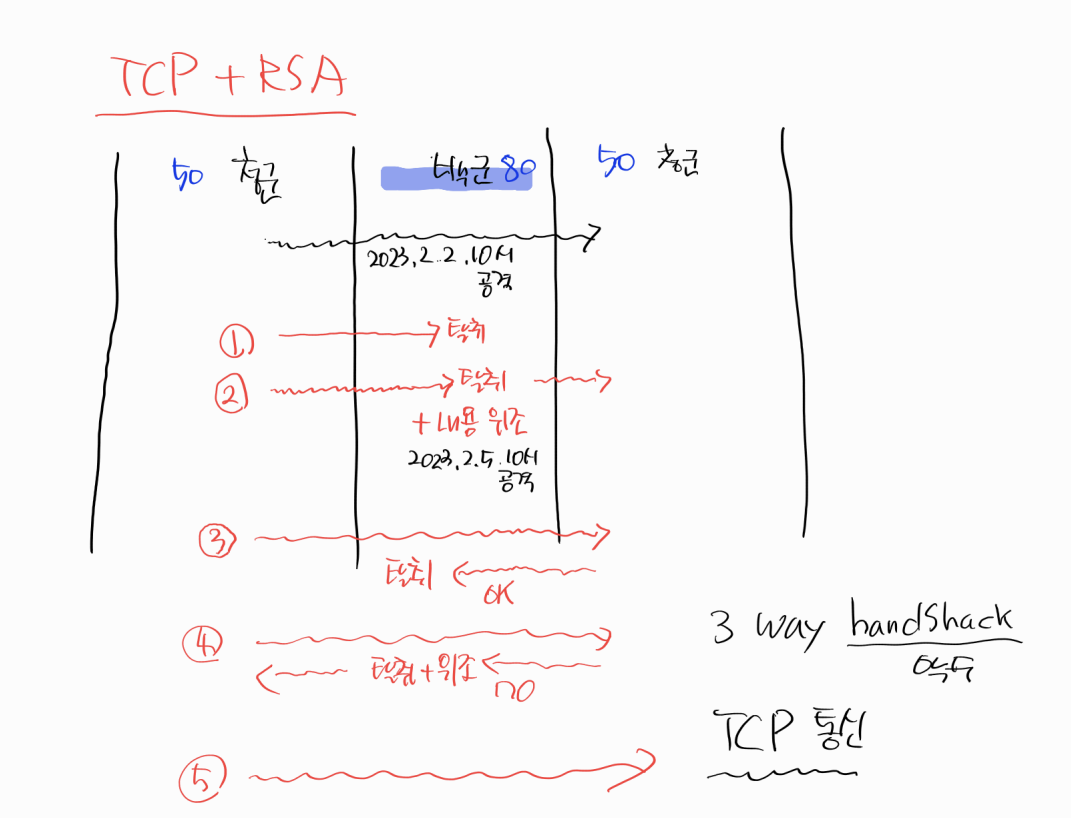 TCP + RSA
50 청군
백군 80
50 청군
2023.2.2.10시
공격
① 탈취
② 탈취
+ 내용 위조
2023.2.5.10시
공격
③
탈취 OK
④
탈취 + 위조 no
3 way handshack
악수
TCP 통신
⑤